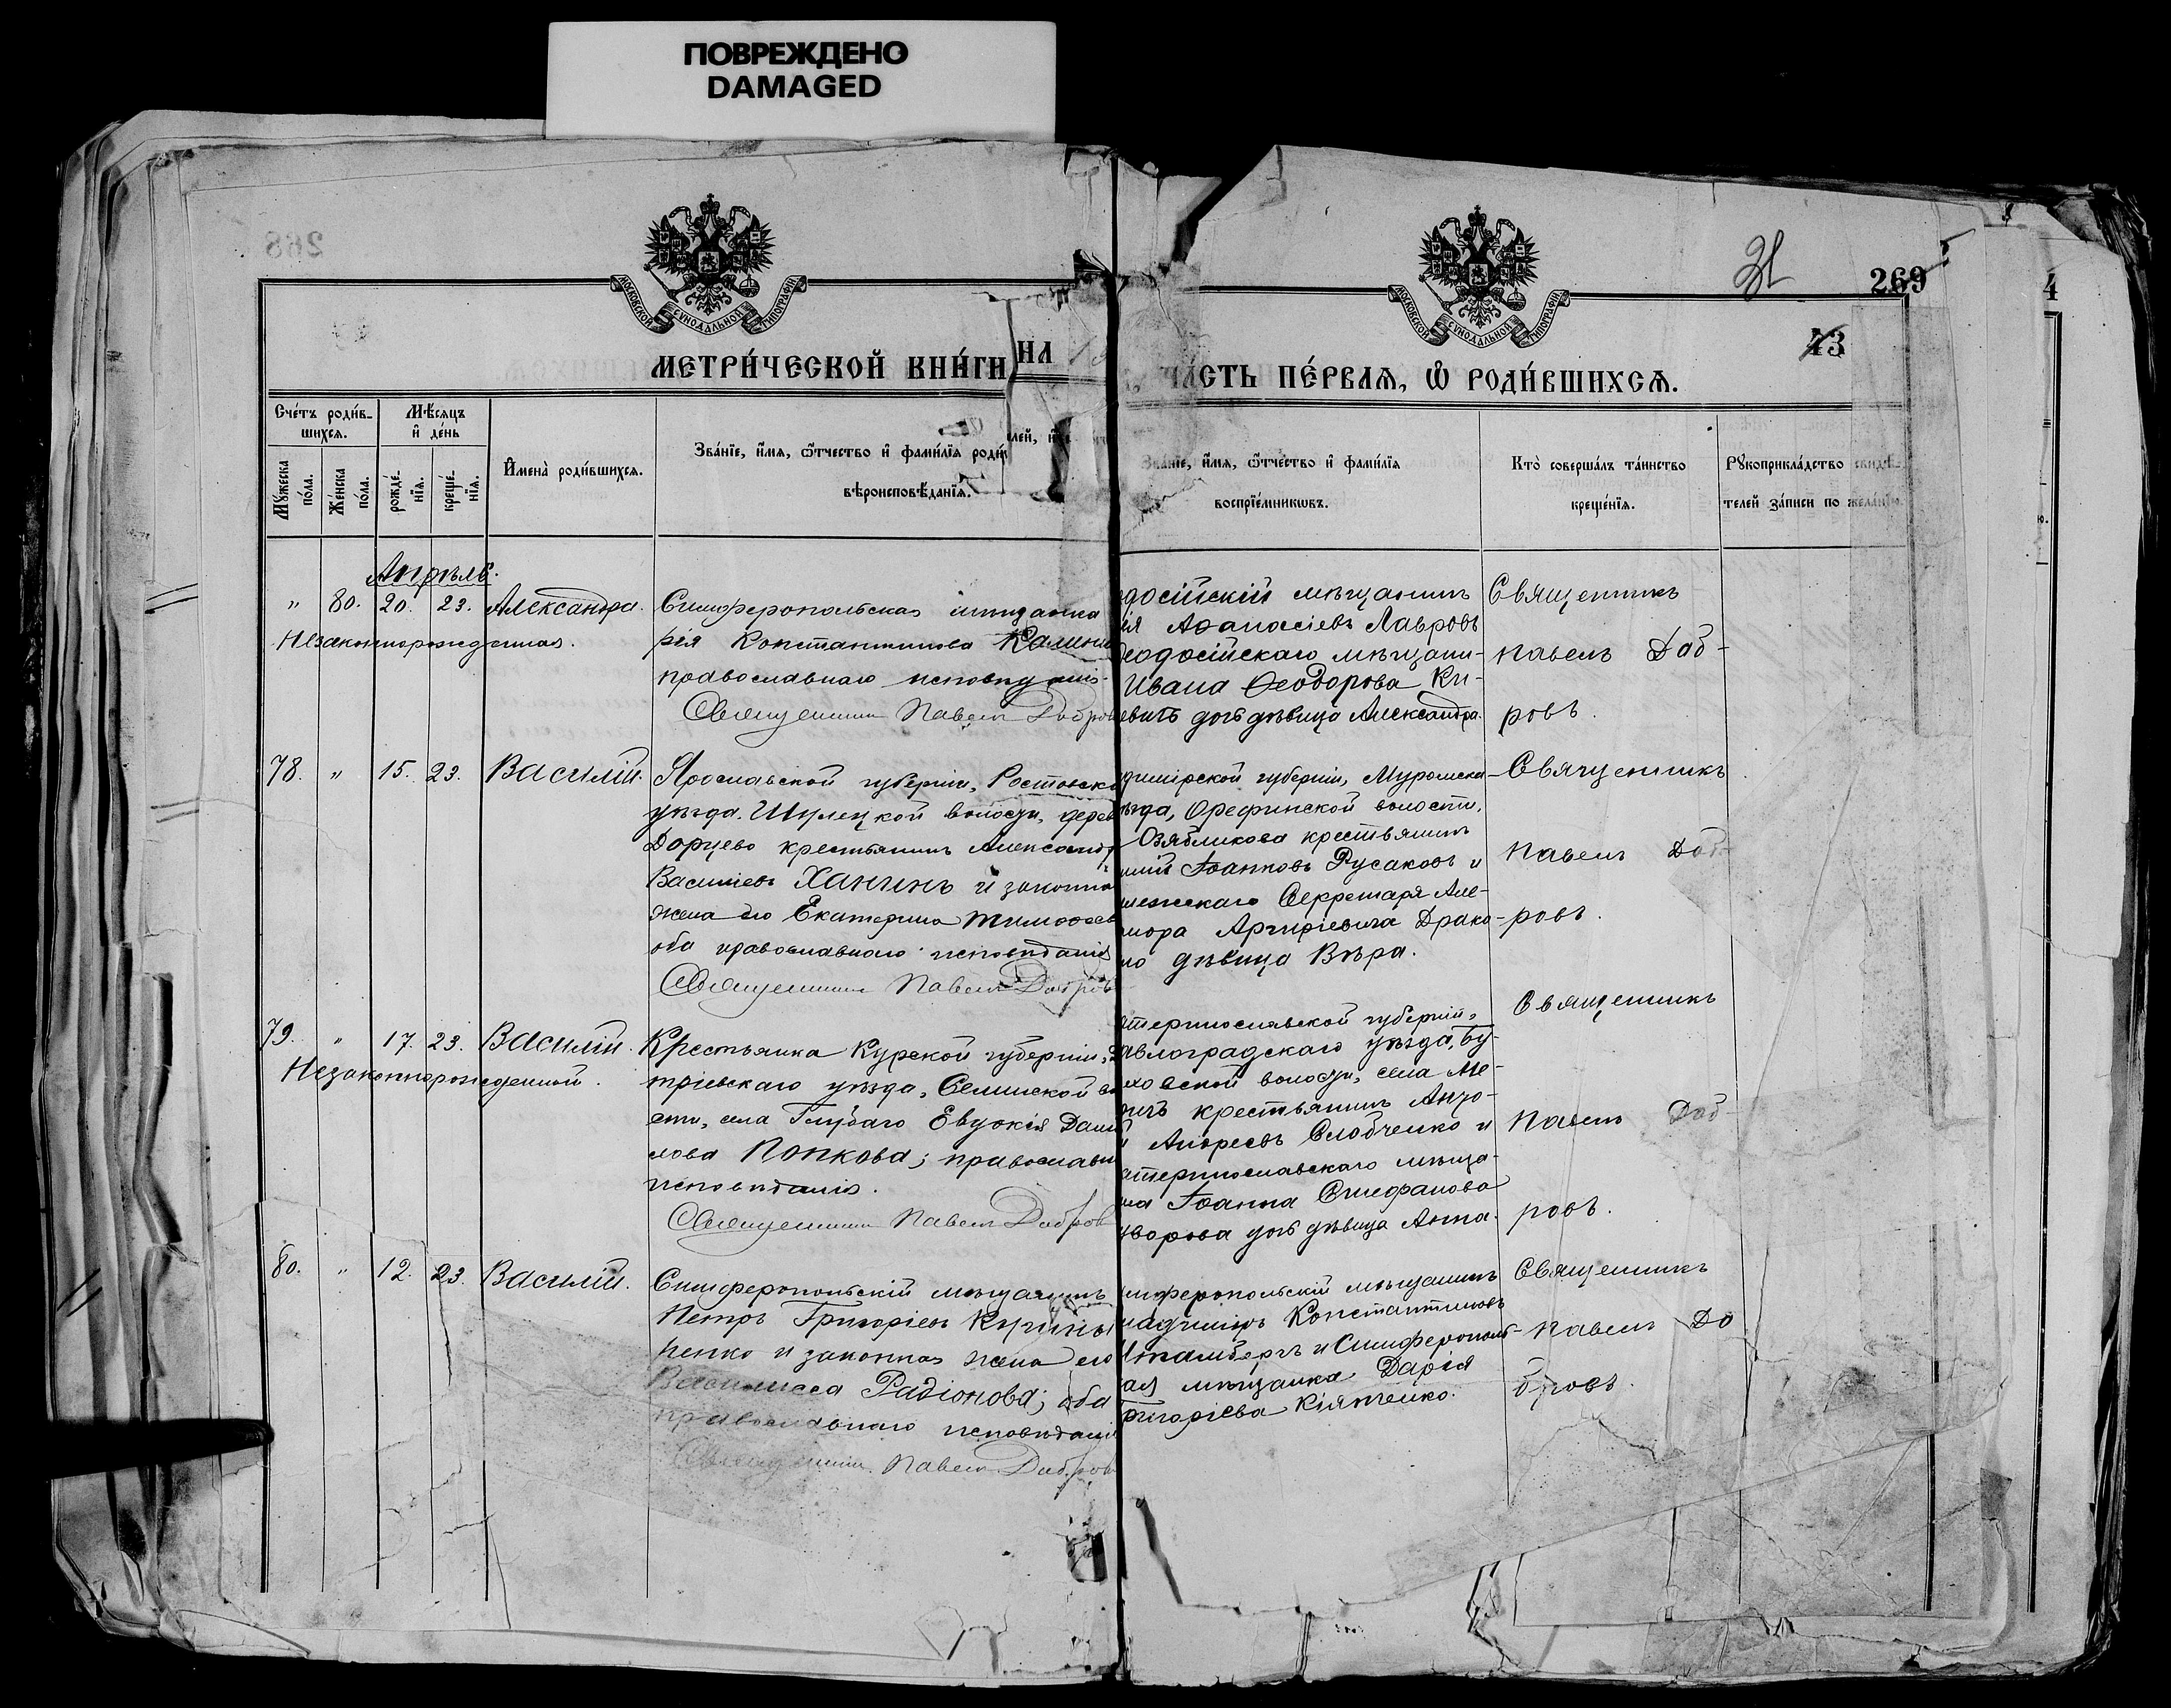 ПОВРЕЖДЕНО
DAMAGED
268
269
4
43
МОСКОВСКОЙ СѴНОДАЛЬНОЙ ТИПОГРАФІИ
МОСКОВСКОЙ СѴНОДАЛЬНОЙ ТИПОГРАФІИ
МЕТРИ́ЧЕСКОЙ КНИ́ГИ НА
ЧА́СТЬ ПЕ́РВАѦ, Ѽ РОДИ́ВШИХСѦ.
Сче́тъ роди́в-
шихсѧ.
Мѣ́сѧцъ
и҆ де́нь
Мꙋ́жеска
по́ла.
Же́нска
по́ла.
рожде́-
нїѧ.
креще́-
нїѧ.
И҆мена̀ роди́вшихсѧ.
Зва́нїе, и҆́мѧ, ѻ҆́тчество и҆ фами́лїѧ роди́
лей, и҆
вѣроисповѣ́данїѧ.
Зва́нїе, и҆́мѧ, ѻ҆́тчество и҆ фами́лїѧ
воспрїе́мникѡвъ.
Кто̀ соверша́лъ та́инство
креще́нїѧ.
Рꙋкоприкла́дство свидѣ́-
телей за́писи по жела́нїю.
Апрѣль.
" 80. 20. 23. Александра.
Незаконнорожденная.
Симферопольская мѣщанка
рія Константинова Калини
православнаго исповѣдані
Священникъ Павелъ Добров
одосійскій мѣщанинъ
ія Аѳанасіевъ Лавровъ
еодосійскаго мѣщани-
Ивана Ѳеодорова Ки-
евичъ дочь дѣвица Александра.
Священникъ
Павелъ Доб-
ровъ.
78. " 15. 23. Василій.
Ярославской губерніи, Ростовск
уѣзда, Шулецкой волости, дерев
Дорцево крестьянинъ Александр
Васильевъ Ханинъ и законна
жена его Екатерина Тимоѳеев
оба православнаго исповѣданія
Священникъ Павелъ Добров
димірской губерніи, Муромска-
ѣзда, Арефинской волости,
Озябликова крестьянинъ
илій Іоанновъ Русаковъ и
Секретаря Але-
Аргиріевича Драко-
но дѣвица Вѣра.
Священникъ
Павелъ Доб-
ровъ.
79. " 17. 23. Василій.
Незаконнорожденный.
Крестьянка Курской губерніи, Д
тріевскаго уѣзда, Селинской во
сти, села Глубаго Евдокія Дани
лова Попкова; православн
исповѣданія.
Священникъ Павелъ Добров
атеринославской губерніи,
авлоградскаго уѣзда, Бу-
ховской волости, села Ме-
крестьянинъ Анто-
й Андреевъ Слобченко и
атеринославскаго мѣща-
на Іоанна Стефанова
уворова дочь дѣвица Анна.
Священникъ
Павелъ Доб-
ровъ.
80. " 12. 23. Василій.
Симферопольскій мѣщанинъ
Петръ Григоріевъ
пенко и законная жена его
Василисса Радіонова; оба
православнаго исповѣдані
Священникъ Павелъ Добров
имферопольскій мѣщанинъ
ладиміръ Константиновъ
Штамбергъ и Симферополь-
ая мѣщанка Дарія
Григоріева Кіянченко.
Священникъ
Павелъ До
бровъ.